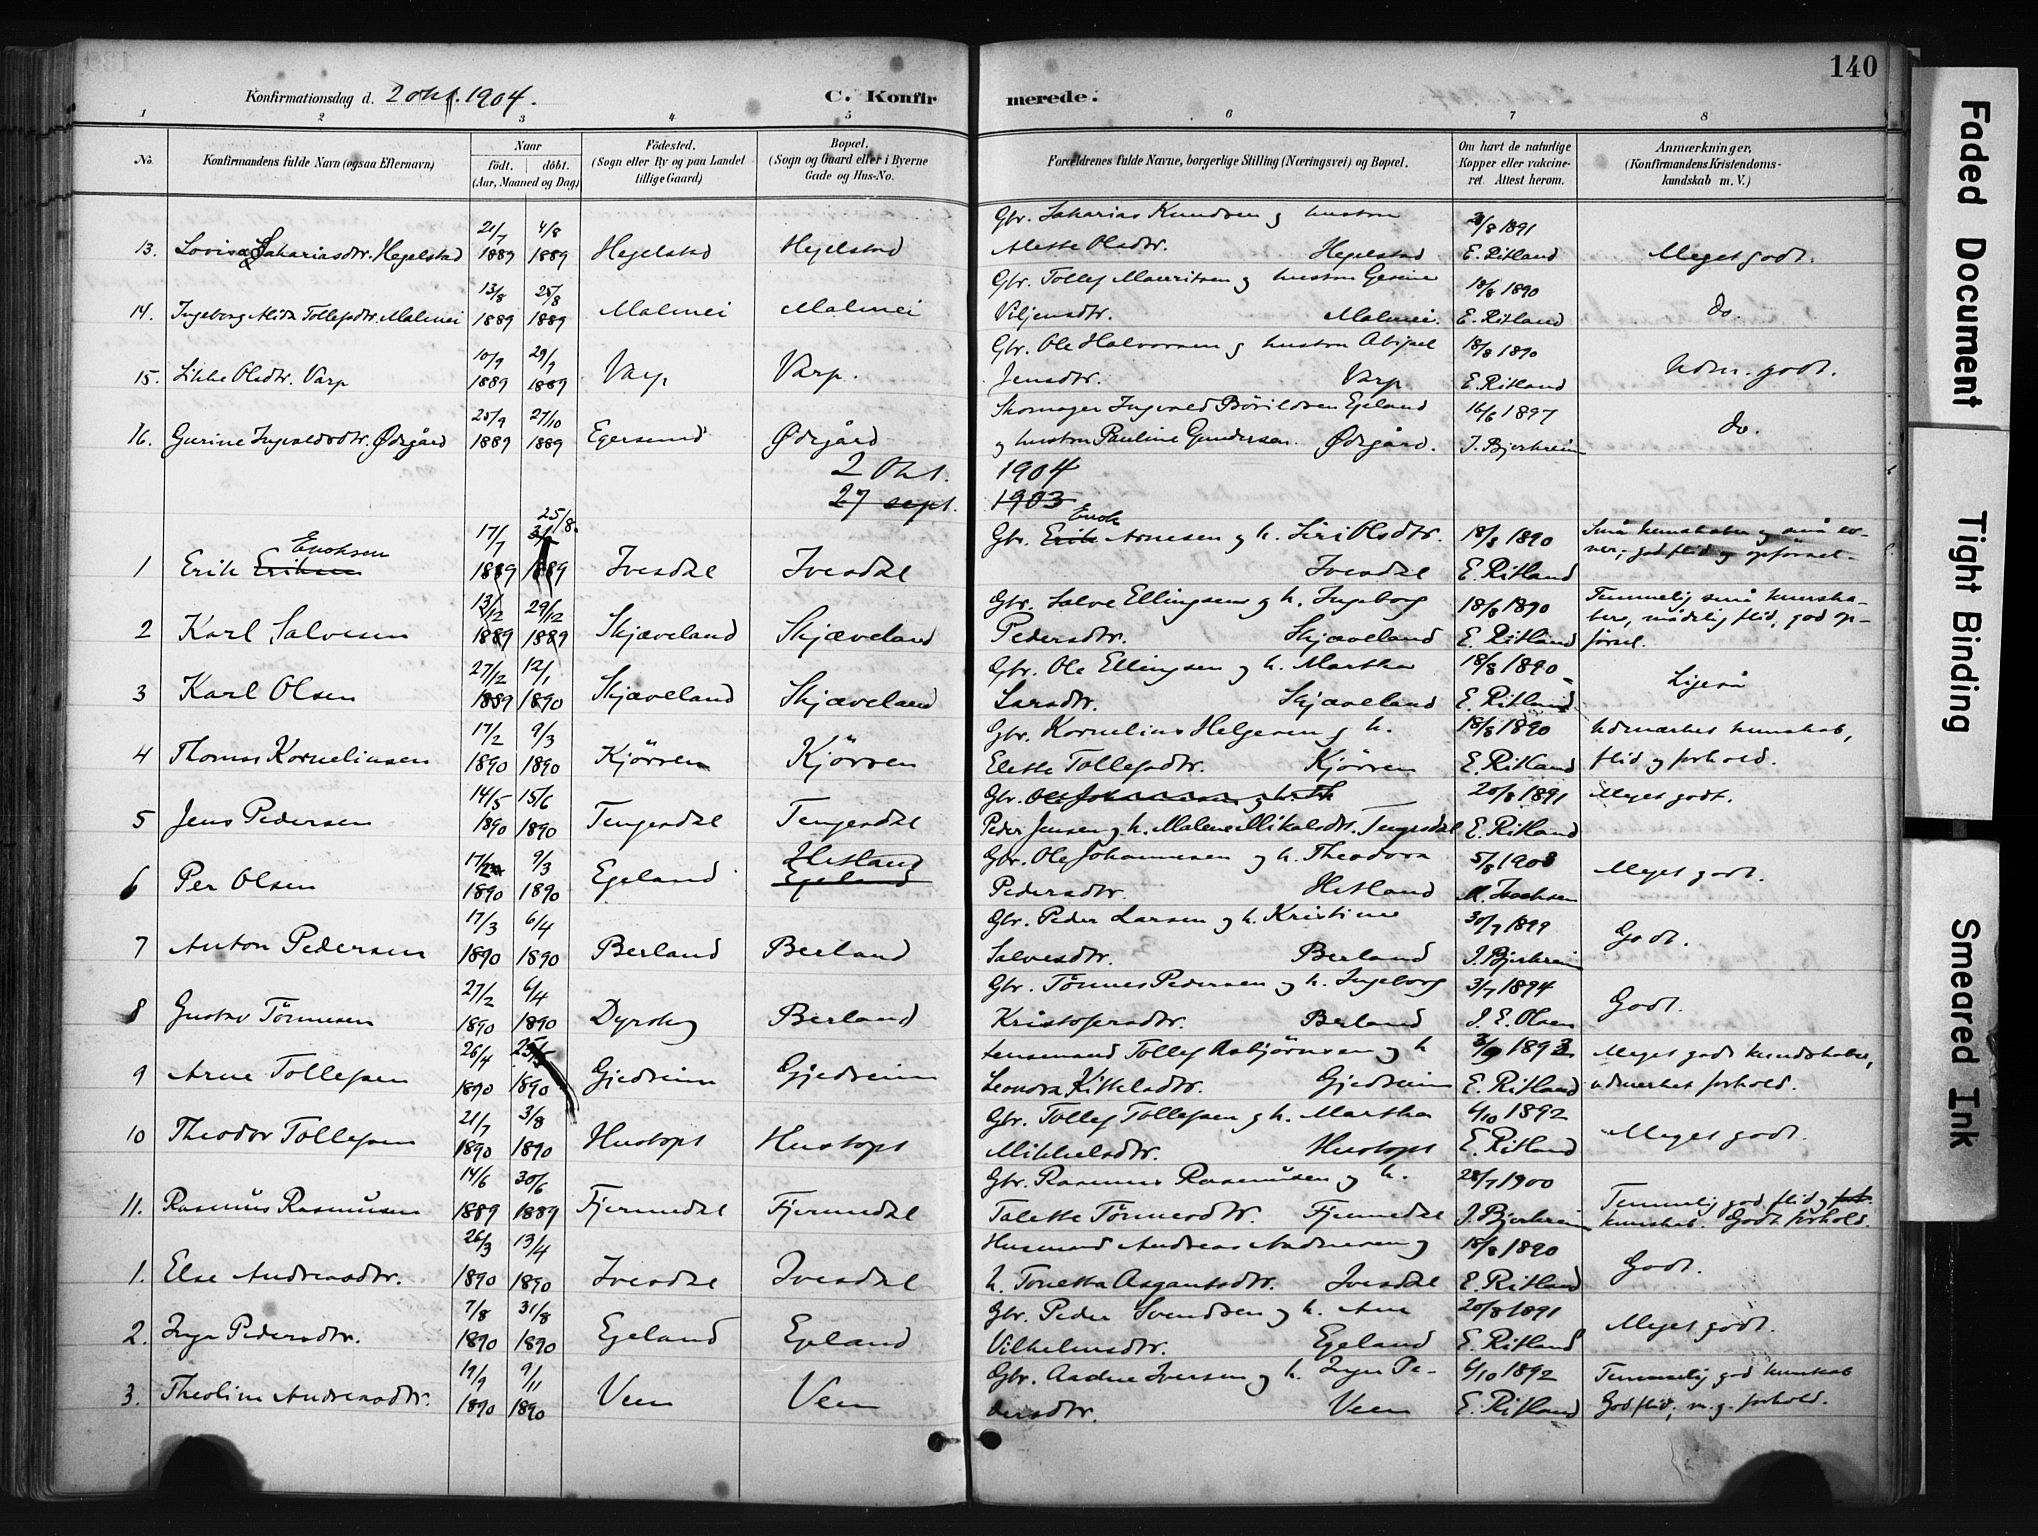 140
Konfirmationsdag d. 2 okt. 1904.
C. Konfirmerede.
1 2 3 4 5 6 7 8
No. Konfirmandens fulde Navn (ogsaa Efternavn) Naar født, døbt. (Aar, Maaned og Dag) Fødested. (Sogn eller By og paa Landet tillige Gaard) Bopæl. (Sogn og Gaard eller i Byerne Gade og Hus-No. Forældrenes fulde Navne, borgerlige Stilling (Næringsvei) og Bopæl. Om havt de naturlige Kopper eller vakcineret. Attest herom. Anmærkninger. (Konfirmandens Kristendomskundskab m. V.)
21/7 4/8 Gbr. Sakarias Knudsen og hustru 21/8 1891
13. Lovisa Sakariasdtr. Hegelstad 1889 1889 Hegelstad Hegelstad Alette Olsdtr. Hegelstad E. Ritland Meget godt.
13/8 25/8 Gbr. Tollef Mauritsen og hustru Gesine 18/8 1890
14. Ingeborg Alida Tollefsdtr. Malmei 1889 1889 Malmei Malmei Viljensdtr. Malmei. E. Ritland Do.
10/9 29/9 Gbr. Ole Halvorsen og hustru Abigael 18/8 1890
15. Sikke Olsdtr. Varp 1889 1889 Varp Varp. Jensdtr. Varp E. Ritland Udm. godt.
25/9 27/10 Skomager Ingvald Börildsen Egeland 16/6 1897
16. Gurine Ingvaldsdtr. Ødegård 1889 1889 Egersund Ødegård og hustru Pauline Gundersen. Ødegård. J. Bjerkreim Do.
2 Okt. 1904
27 sept. 1903
17/7 25/8 Gbr. Enok Arnesen og h. Siri Olsdtr. 18/8 1890 Små kunskaber og små evner, god flid og opførsel.
1 Erik Enoksen 1889 1889 Ivesdal Ivesdal Ivesdal E. Ritland
13/12 29/12 Gbr. Salve Ellingsen og h. Ingeborg 18/8 1890 Temmelig små kunskaber, mådelig flid, god opførsel.
2 Karl Salvesen 1889 1889 Skjæveland Skjæveland Pedersdtr. Skjæveland E. Ritland
27/12 12/1 Gbr. Ole Ellingsen og h. Martha 18/8 1890
3 Karl Olsen 1889 1890 Skjæveland Skjæveland Larsdtr. Skjæveland E. Ritland Ligeså
17/2 9/3 Gbr. Kornelius Helgesen og h. 18/8 1890 Udmærket kunskab,
4 Thomas Korneliusen 1890 1890 Kjörren Kjörren Elette Tollefsdtr. Kjörren E. Ritland flid og forhold.
14/5 15/6 Gbr. Ole Johannesen og h. Th 20/8 1891 Meget godt.
5 Jens Pedersen 1890 1890 Tengesdal Tengesdal Peder Jensen og h. Malene Mikalsdtr. Tengesdal E. Ritland
17/2 9/3 Hetland Gbr. Ole Johannesen og h. Theodora 5/8 1903
6 Per Olsen 1890 1890 Egeland Egeland Pedersdtr. Hetland Meget godt.
17/3 6/4 Gbr. Peder Larsen og h. Kristine 30/7 1899
7 Anton Pedersen 1890 1890 Berland Berland Salvesdtr. Berland J. Bjerkreim Godt.
27/2 6/4 Gbr. Tönnes Pedersen og h. Ingeborg 3/7 1894
8 Gustav Tönnesen 1890 1890 Dyrskog Berland Kristofersdtr. Berland J. E. Olsen Godt.
26/4 25/5 Lensmand Tollef Asbjörnsen og h 3/9 1893 Meget gode kundskaber,
9 Arne Tollefsen 1890 1890 Gjedreim Gjedreim Leonora Kittelsdtr. Gjedreim E. Ritland udmerket forhold.
21/7 3/8 Gbr. Tollef Tollefsen og h. Martha 6/10 1892
10 Theodor Tollefsen 1890 1890 Hustoft Hustoft Mikkelsdtr. Hustoft E. Ritland Meget godt.
14/6 30/6 Gbr. Rasmus Rasmussen og h. 28/7 1900
11. Rasmus Rasmussen 1889 1889 Fjermedal Fjermedal Talette Tönnesdtr. Fjermedal J. Bjerkreim Temmelig god flid og kunskab. Godt forhold.
26/3 13/4 Husmand Andreas Andersen og 18/8 1890
1. Else Andreasdtr. 1890 1890 Ivesdal Ivesdal h. Tonetta Asgautsdtr. Ivesdal E. Ritland Godt.
7/8 31/8 Gbr. Peder Svendsen og h. Ane 20/8 1891
2. Inga Pedersdtr. 1890 1890 Egeland Egeland Vilhelmsdtr. Egeland E. Ritland Meget godt.
19/9 9/11 Gbr. Aadne Iversen og h. Inga Pe- 6/10 1892 Temmelig god kunskab
3. Theoline Andreasdtr. 1890 1890 Veen Veen dersdtr. Veen E. Ritland God flid, m. g. forhold.
Faded Document
Tight Binding
Smeared Ink